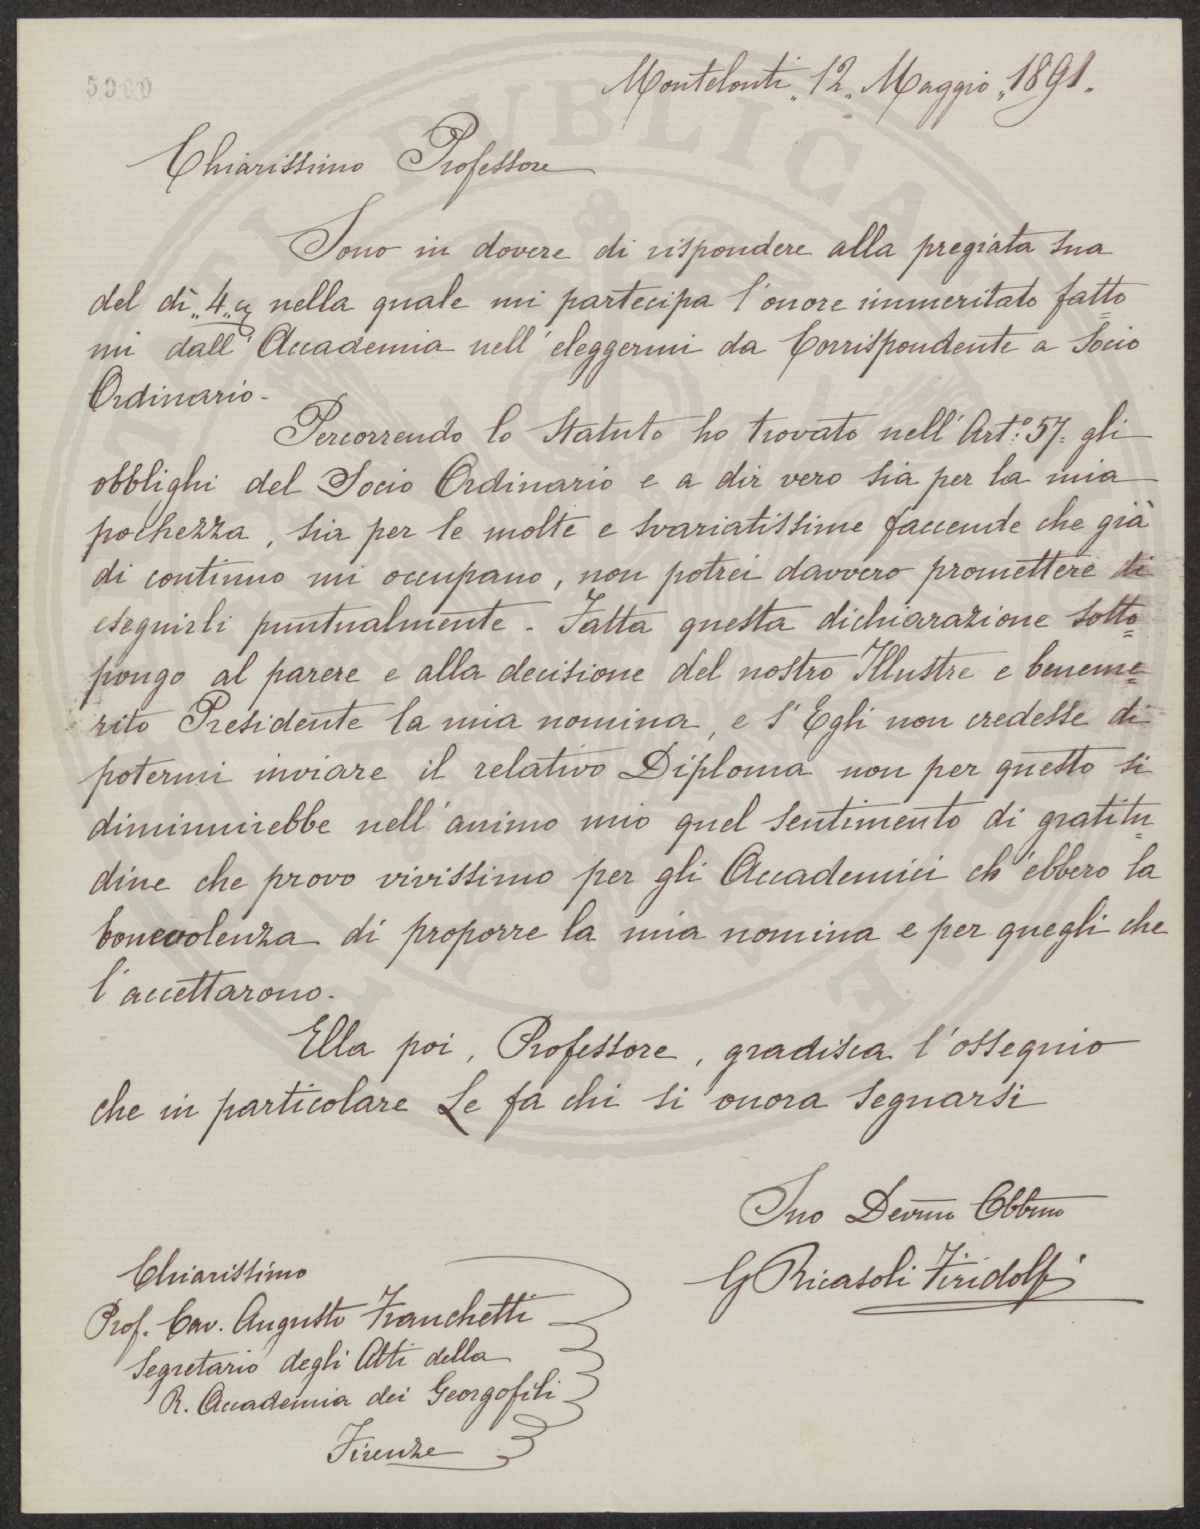 5000
Montelonti, 12, Maggio, 1891.
Chiarissimo Professore
Sono in dovere di rispondere alla pregiata sua
del dì, 4, nella quale mi partecipa l'onore immeritato fatto=
mi dall'Accademia nell'eleggermi da Corrispondente a Socio
Ordinario.
Percorrendo lo Statuto ho trovato nell'Art.º 57. gli
obblighi del Socio Ordinario e a dir vero sia per la mia
pochezza, sia per le molte e svariatissime faccende che già
di continuo mi occupano, non potrei davvero promettere di
eseguirli puntualmente. Fatta questa dichiarazione sotto=
pongo al parere e alla decisione del nostro Illustre e beneme=
rito Presidente la mia nomina, e s'Egli non credesse di
potermi inviare il relativo Diploma non per questo si
diminuirebbe nell'animo mio quel sentimento di gratitu=
dine che provo vivissimo per gli Accademici ch'ebbero la
benevolenza di proporre la mia nomina e per quegli che
l'accettarono.
Ella poi, Professore, gradisca l'ossequio
che in particolare Le fa chi si onora segnarsi
Suo Devmo Obbmo
G Ricasoli Firidolfi
Chiarissimo
Prof. Cav. Augusto Franchetti
Segretario degli Atti della
R. Accademia dei Georgofili
Firenze